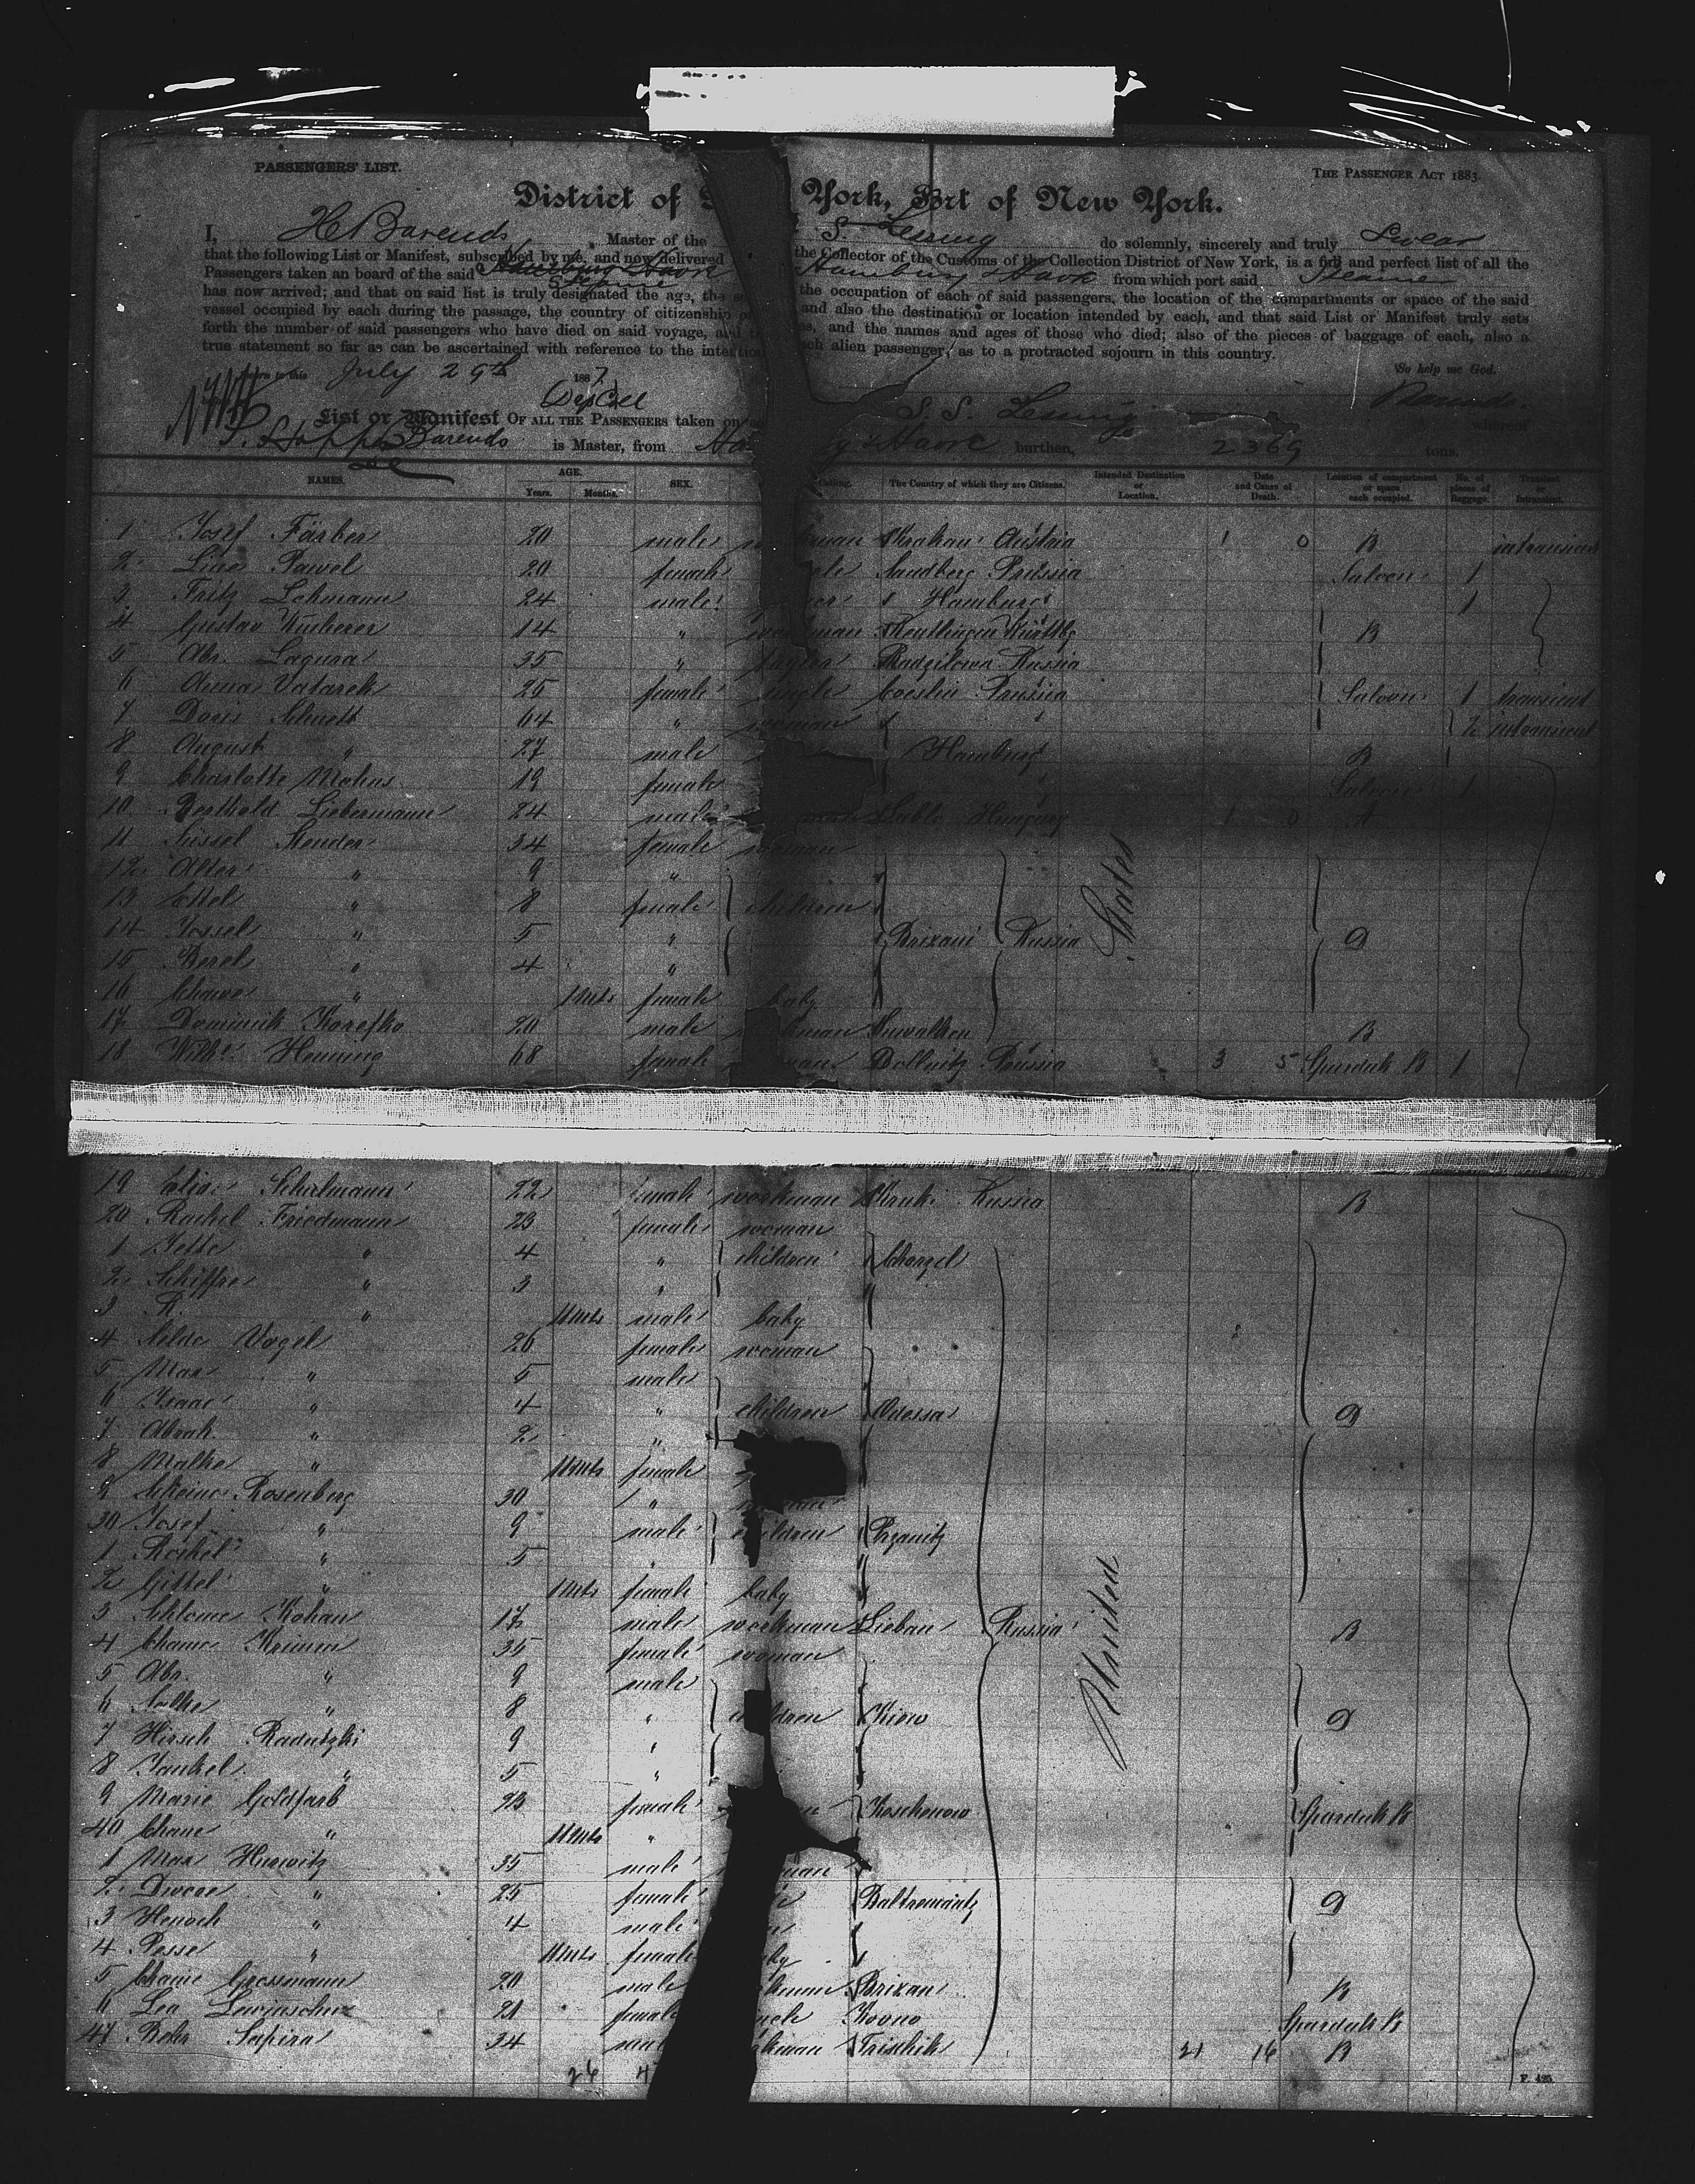 PASSENGERS' LIST.
THE PASSENGER ACT 1883.
District of York, Port of New York.
I, H Barends Master of the S. Lessing do solemnly, sincerely and truly Swear
that the following List or Manifest, subscribed by me, and now delivered the Collector of the Customs of the Collection District of New York, is a full and perfect list of all the
Passengers taken on board of the said Hamburg & Havre from which port said Steamer
has now arrived; and that on said list is truly designated the age, the the occupation of each of said passengers, the location of the compartments or space of the said
vessel occupied by each during the passage, the country of citizenship and also the destination or location intended by each, and that said List or Manifest truly sets
forth the number of said passengers who have died on said voyage, and the names and ages of those who died; also of the pieces of baggage of each, also a
true statement so far as can be ascertained with reference to the intention alien passenger, as to a protracted sojourn in this country.
So help me God.
to this July 29th 1887
Barends
List or Manifest OF ALL THE PASSENGERS taken on S. S. Lessing whereof
Barends is Master, from & Havre burthen, 2369 tons.
NAMES. AGE. Years. Months. SEX. Calling. The Country of which they are Citizens. Intended Destination or Location. Date and Cause of Death. Location of compartment or space each occupied. No. of pieces of Baggage. Transient or Intransient.
1 Josef Färber 20 male Krakau Austria 1 0 B intransient
2 Pawel 20 female Sandberg Prussia Saloon 1
3 Fritz Lehmann 24 male Hamburg 1
4 Gustav Kucherer 14 " Reutlingen B
5 Abr. Lagura 35 " Russia
6 Anna Vatarek 25 female Coeslin Prussia Saloon 1 transient
7 Doris Schuett 64 " woman intransient
8 August " 27 male Hamburg B
9 Charlotte Mohns 19 female Saloon 1
10 Berthold Liebermann 24 male Hungary 1 0 A
11 Süssel Stender 34 female woman
12 Alter " 9 "
13 Ettel " 8 female children
14 Jossel " 5 " Brixani Russia D
15 Berel " 4 "
16 Chawe " Mts female baby
17 Dominick 20 male Suwalken B
18 Wilhe. Henning 68 female Dollnitz Prussia 3 5 Spardeck B 1
States
19 Schulmann 22 female workman Kruki Russia B
20 Rachel Friedmann 23 female woman
1 Jette " 4 " children Chorzel
2 Schiffre " 3 "
3 R. " 11 Mts male baby
4 Vogel 26 female woman
5 Max " 5 male
6 Isaac " 4 " children Odessa D
7 Abrah. " 2 "
8 Malke " 11 Mts female
9 Scheine Rosenberg 30 "
30 Josef " 9 male children
1 Rachel " 5 "
2 Gittel " Mts female baby
3 Schlome Kohan 17 male workman Liebau Russia B
4 Chane 35 female woman
5 Abr. " 9 male
6 " 8 " children Kiew D
7 Hirsch Radutzki 9 "
8 Jankel " 5 "
9 Marie Goldfarb 23 female Koschenowo Spardeck B
40 Chane " 11 Mts "
1 Max Hurwitz 35 male
2 " 25 female D
3 Henoch " 4 male
4 Pesse " 11 Mts female
5 Chaine Grossmann 20 male Brixan B
6 Lea 21 female Kovno Spardeck B
47 Behr Sapira 34 Trischik 21 16 B
United
26
F. 425